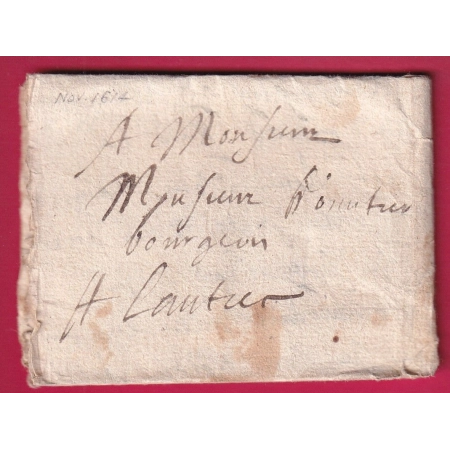 NOV. 1614
A Monsieur
Monsieur
bourgeois
A Lautrec